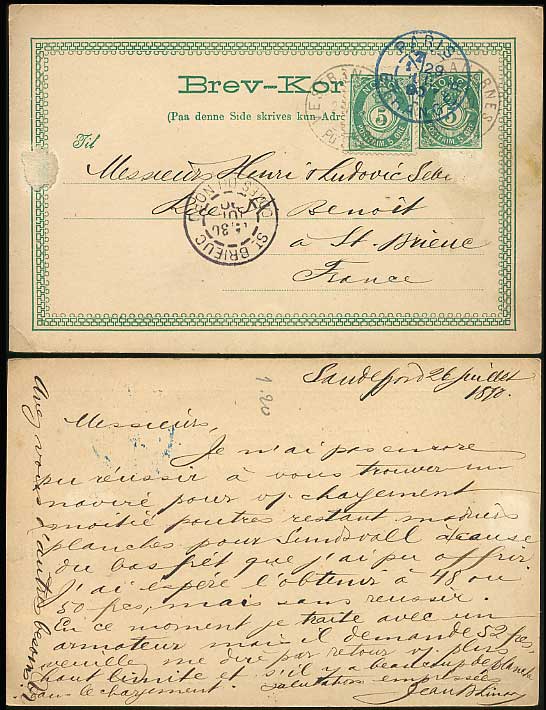 Brev-Kor
(Paa denne Side skrives kun Adre
Til
NORGE
5
POSTFRIM. 5 ØRE
NORGE
5
POSTFRIM. 5 ØRE
PARIS
29
90
ST BRIEUC
CÔTES DU NORD
Messieurs Henri & Ludovic
Rue Benoît
à St. Brieuc
France
1.20
Sandefjord 26 juillet
1890.
Messieurs,
Je n'ai pas encore
pu réussir à vous trouver un
navire pour vj. chargement
moitié poutres restant madriers
planches pour Sundsvall à cause
du bas frêt que j'ai pu offrir.
J'ai espéré l'obtenir à 48 ou
50 fcs, mais sans réussir.
En ce moment je traite avec un
armateur mais il demande 52 fcs,
veuillez me dire par retour vj. plus
haut limite et s'il y a beaucoup de planch
dans le chargement.
salutations empressées
Jean
Avez vous d'autres besoins?